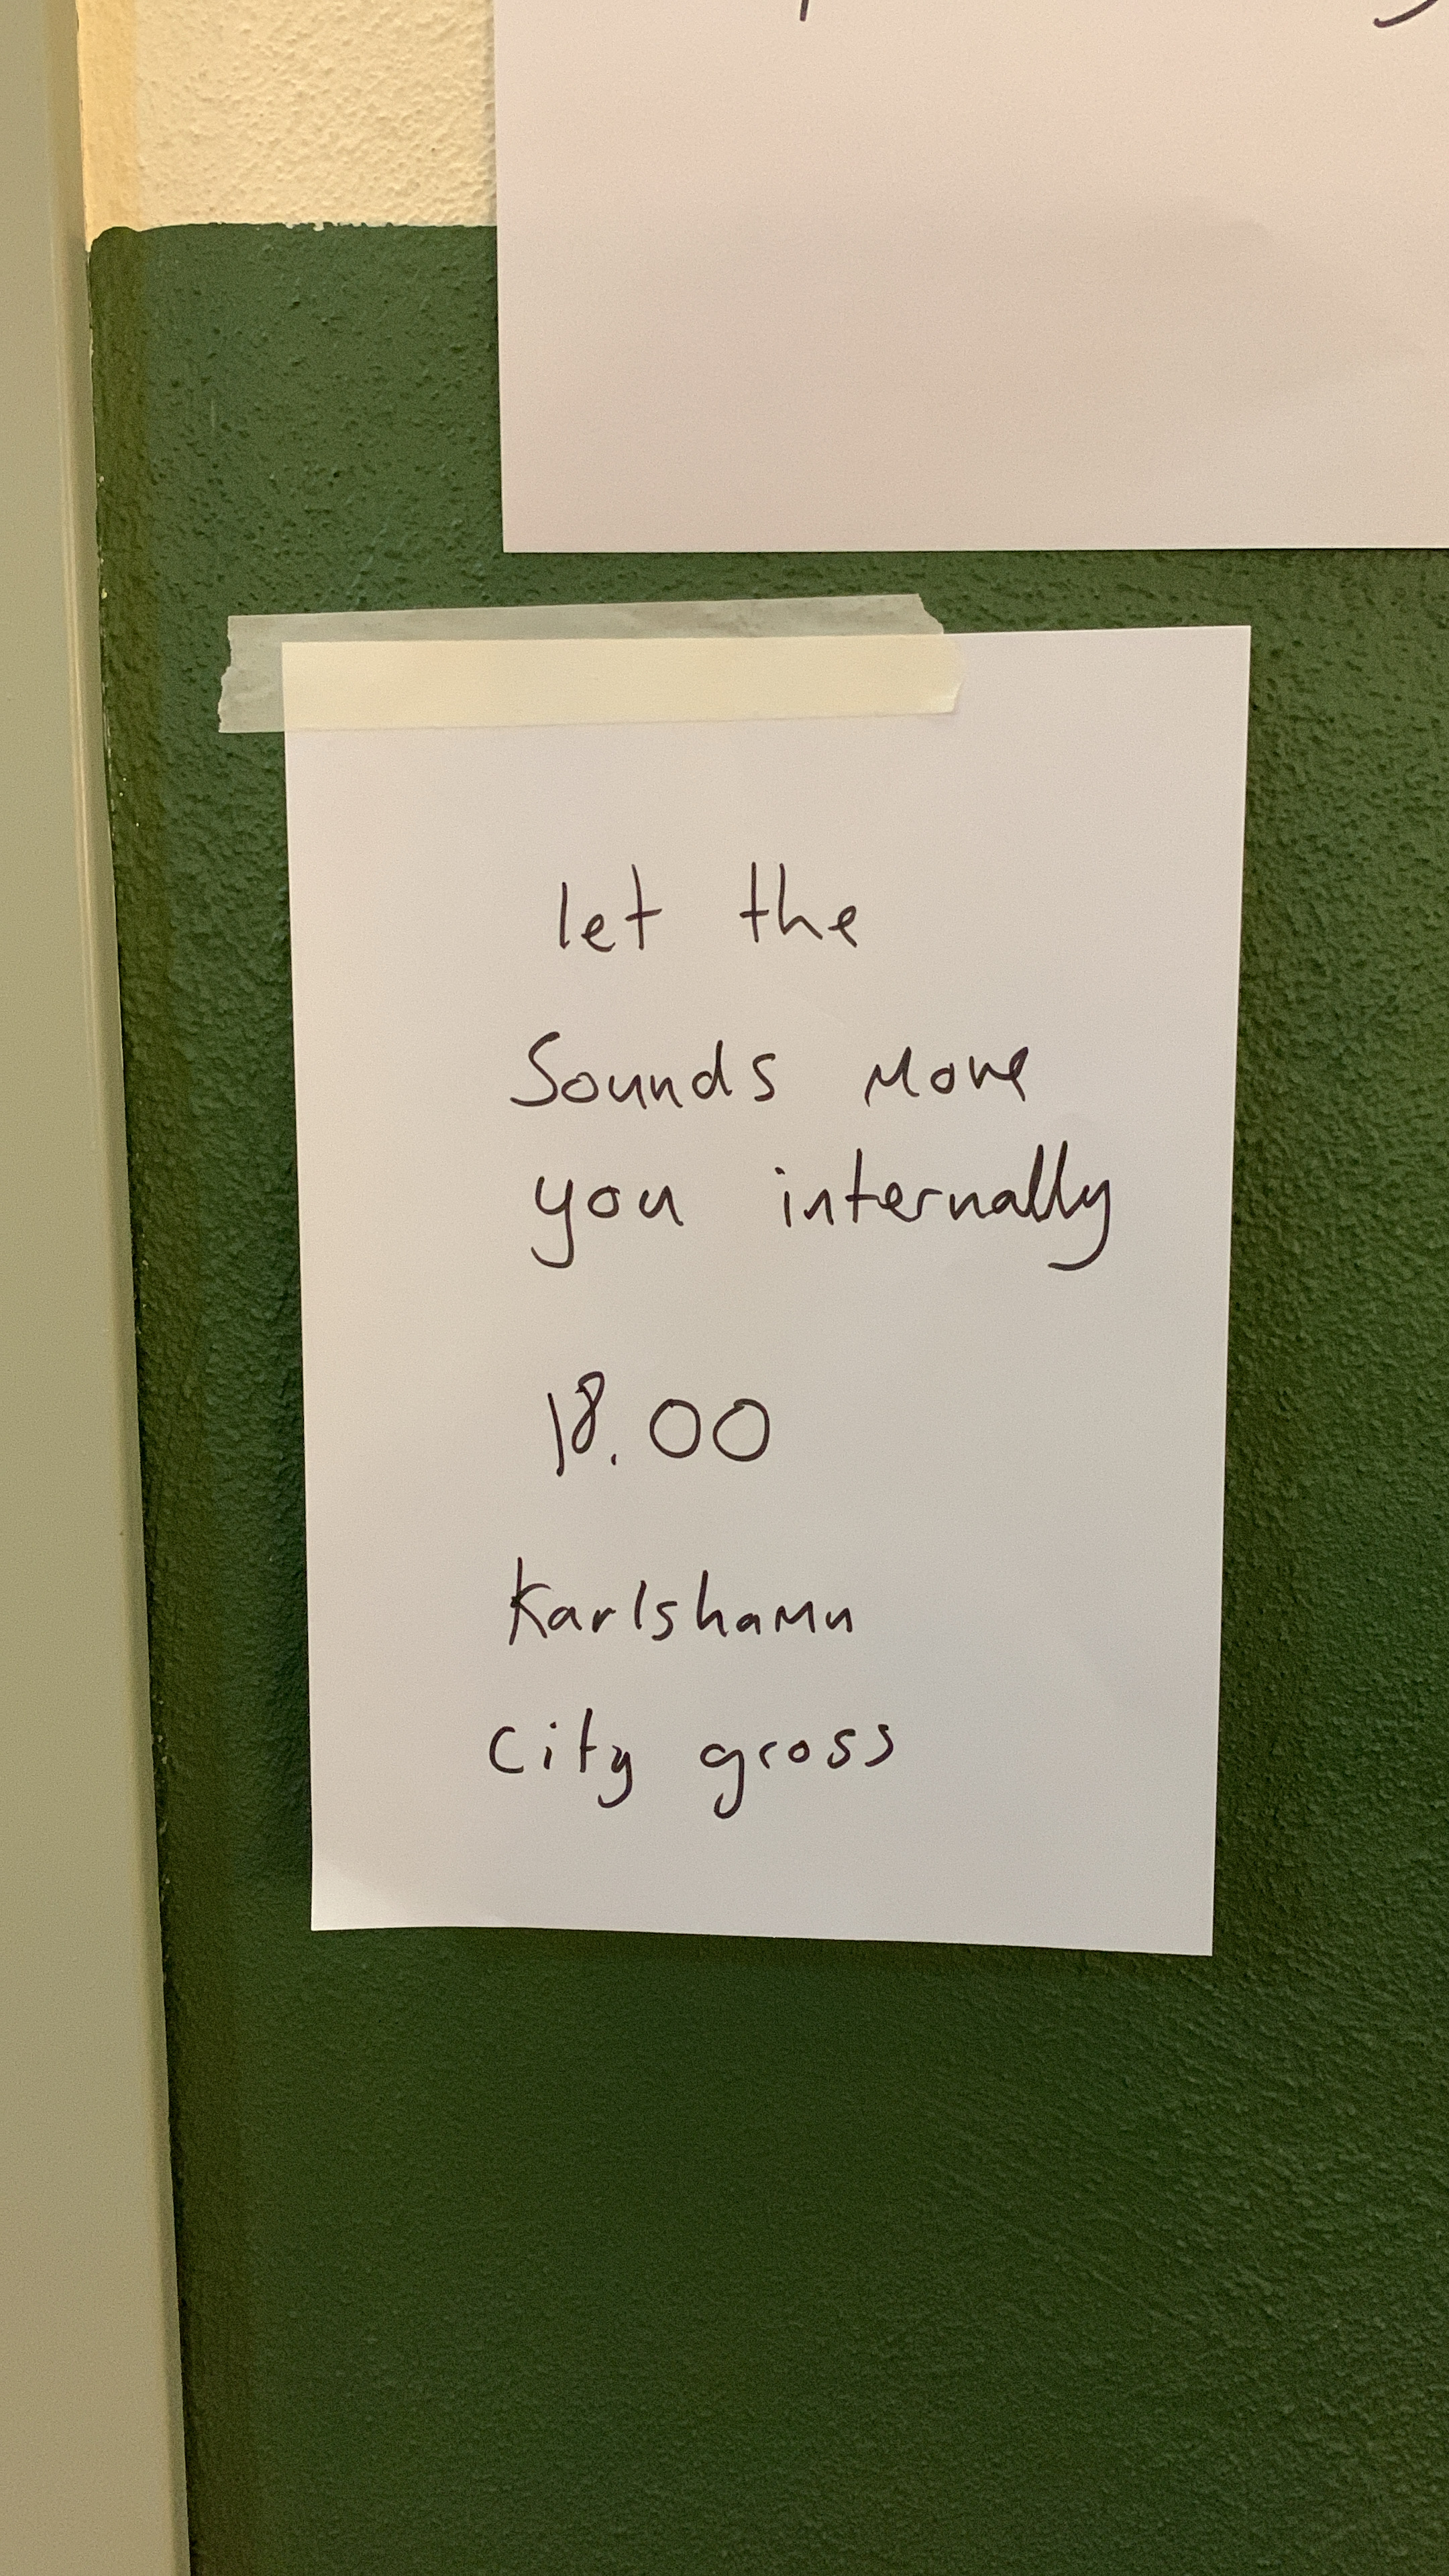 let the
Sounds Move
you internally
18.00
Karlshamn
City gross